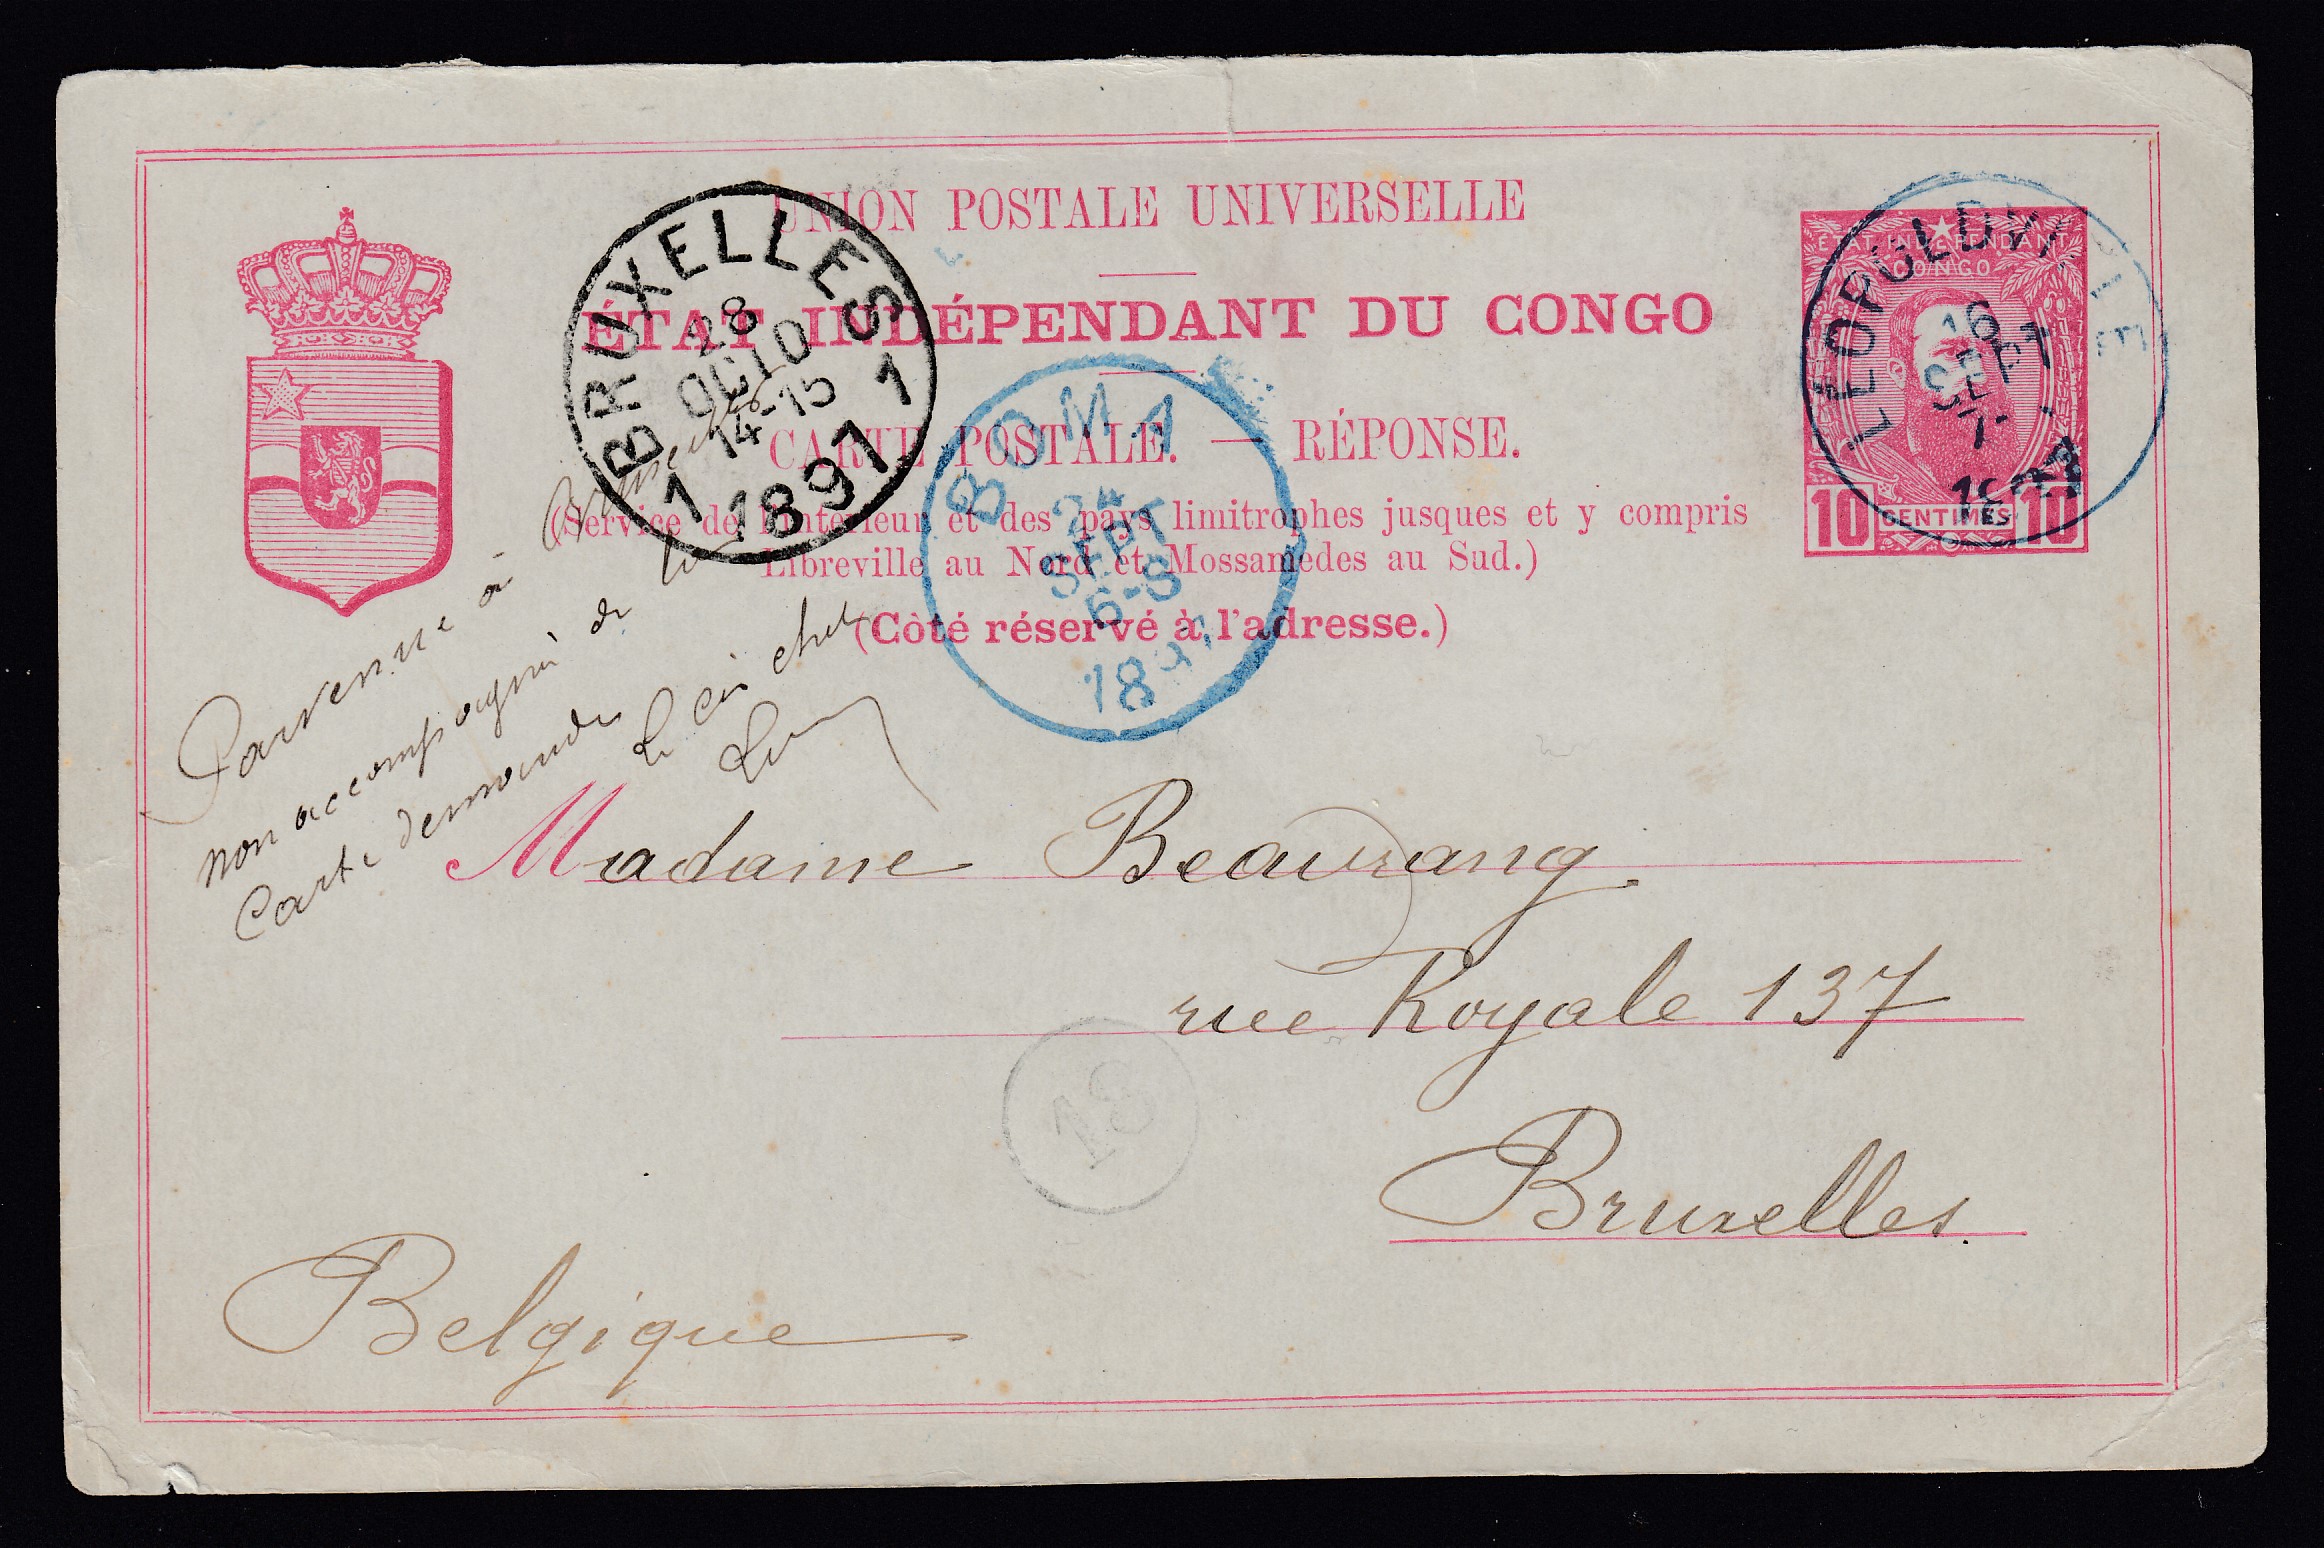 UNION POSTALE UNIVERSELLE
ÉTAT INDÉPENDANT DU CONGO
CARTE POSTALE. — RÉPONSE.
(Service de l'intérieur et des pays limitrophes jusques et y compris
Libreville au Nord et Mossamedes au Sud.)
(Côté réservé à l'adresse.)
ÉTAT INDÉPENDANT
CONGO
10 CENTIMES 10
LÉOPOLDVILLE
16
SEPT
7-
1897
BRUXELLES
28
OCTO
14-15
1 1897 1
BOMA
24
SEPT
6-8
1897
Parvenue à Bruxelles
non accompagné de la
Carte demande
Madame Beaurang
rue Royale 137
Bruxelles.
Belgique
18